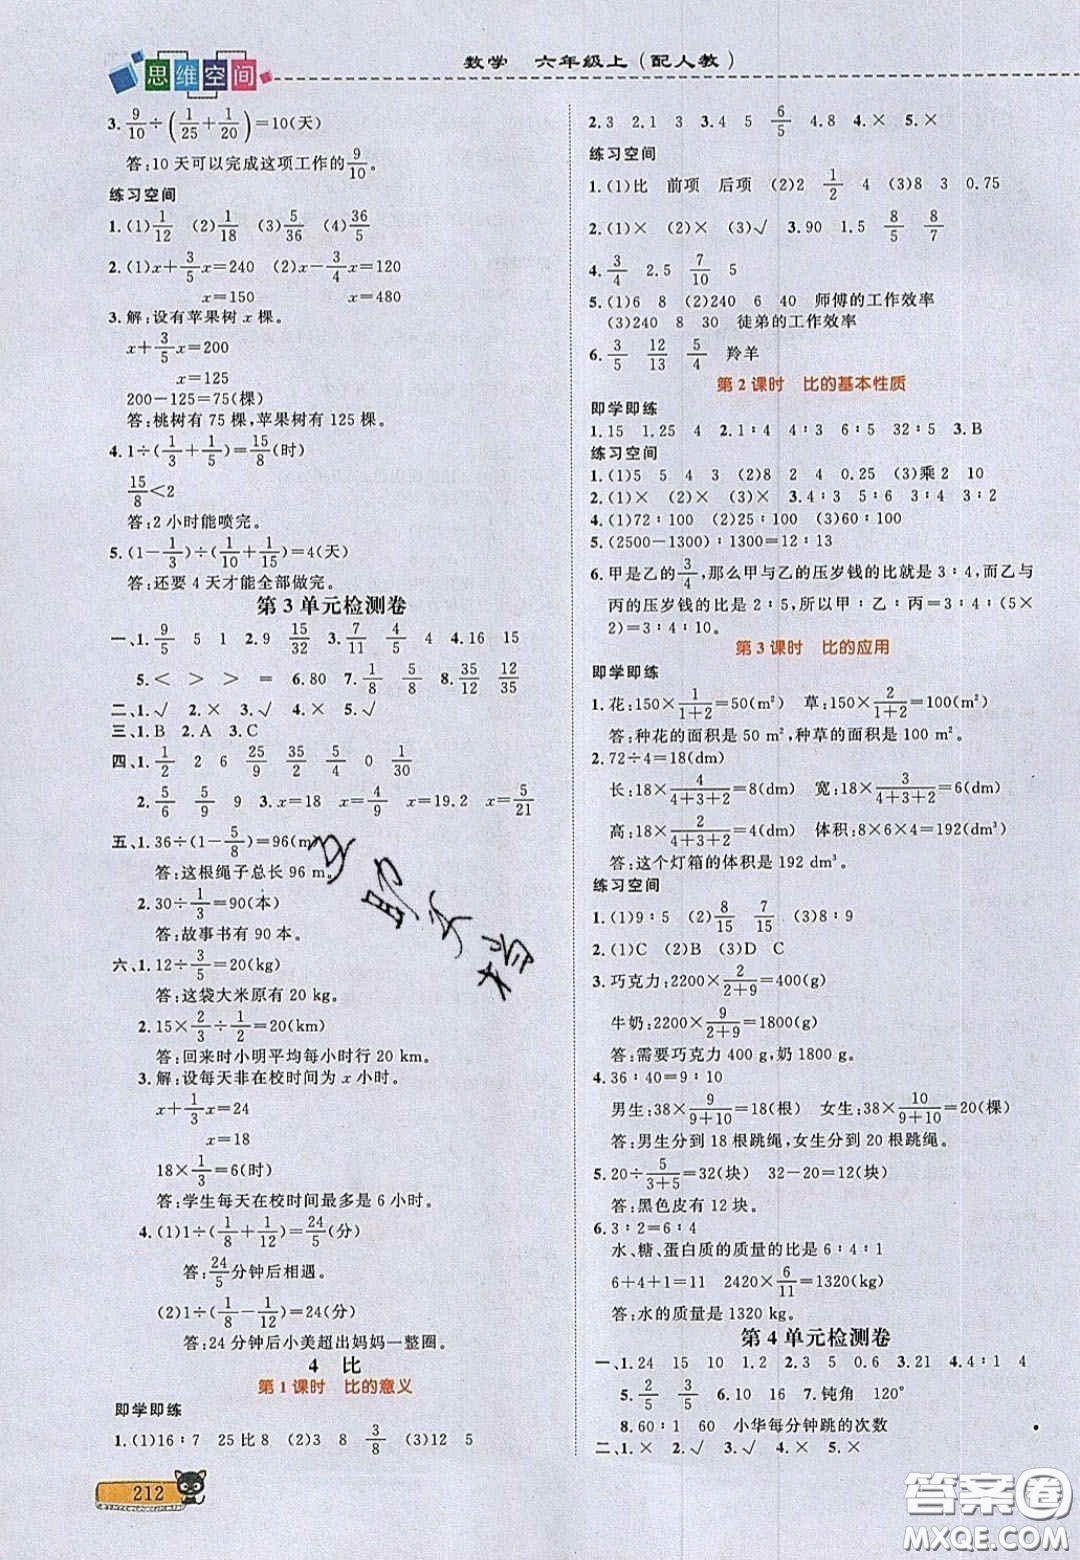 思维空间
数学 六年级上(配人教)
3. 9/10÷(1/25+1/20)=10(天)
答:10 天可以完成这项工作的9/10。
练习空间
1.(1)1/12 (2)1/18 (3)5/36 (4)36/5
2.(1)x+3/5x=240 (2)x-3/4x=120
x=150 x=480
3.解:设有苹果树 x 棵。
x+3/5x=200
x=125
200-125=75(棵)
答:桃树有 75 棵,苹果树有 125 棵。
4.1÷(1/3+1/5)=15/8(时)
15/8<2
答:2 小时能喷完。
5.(1-1/3)÷(1/10+1/15)=4(天)
答:还要 4 天才能全部做完。
第 3 单元检测卷
一、1.9/5 5 1 2.9 15/32 3.7/11 4/5 4 4.16 15
5.< > > = 6.80 7.1/8 5/8 8.35/12 12/35
二、1.√ 2.× 3.√ 4.× 5.√
三、1.B 2.A 3.C
四、1.1/2 2 6 25/9 35/2 5/4 0 1/30
2.5/6 5/9 9 3.x=18 x=4/9 x=19.2 x=5/21
五、1.36÷(1-5/8)=96(m
答:这根绳子总长 96 m。
2.30÷1/3=90(本)
答:故事书有 90 本。
六、1.12÷3/5=20(kg)
答:这袋大米原有 20 kg。
2.15×2/3÷1/2=20(km)
答:回来时小明平均每小时行 20 km。
3.解:设每天非在校时间为 x 小时。
x+1/3x=24
x=18
18×1/3=6(时)
答:学生每天在校时间最多是 6 小时。
4.(1)1÷(1/8+1/12)=24/5(分)
答:24/5分钟后相遇。
(2)1÷(1/8-1/12)=24(分)
答:24 分钟后小美超出妈妈一整圈。
4 比
第 1 课时 比的意义
即学即练
1.(1)16∶7 25 比 8 (2)3 8 3/8 (3)12 5
212
2.3 2.1 3 3.4 5 6/5 4.8 4.× 5.×
练习空间
1.(1)比 前项 后项 (2)2 1/2 4 (3)8 3 0.75
2.(1)× (2)× (3)√ 3.90 1.5 8/5 8/7
4.3/4 2.5 7/10 5
5.(1)6 8 (2)240 6 40 师傅的工作效率
(3)240 8 30 徒弟的工作效率
6.3/5 12/13 5/4 羚羊
第 2 课时 比的基本性质
即学即练
1.15 1.25 4 2.1∶4 4∶3 6∶5 32∶5 3.B
练习空间
1.(1)5 5 4 3 (2)8 2 4 0.25 (3)乘2 10
2.(1)× (2)× (3)× 3.4∶3 5∶6 3∶4 3∶2
4.(1)72∶100 (2)25∶100 (3)60∶100
5.(2500-1300)∶1300=12∶13
6.甲是乙的3/4,那么甲与乙的压岁钱的比就是 3∶4,而乙与
丙的压岁钱的比是 2∶5,所以甲∶乙∶丙=3∶4∶(5×
2)=3∶4∶10。
第 3 课时 比的应用
即学即练
1.花:150×1/(1+2)=50(m²) 草:150×2/(1+2)=100(m²)
答:种花的面积是 50 m²,种草的面积是 100 m²。
2.72÷4=18(dm)
长:18×4/(4+3+2)=8(dm) 宽:18×3/(4+3+2)=6(dm)
高:18×2/(4+3+2)=4(dm) 体积:8×6×4=192(dm³)
答:这个灯箱的体积是 192 dm³。
练习空间
1.(1)9∶5 (2)8/15 7/15 (3)8∶9
2.(1)C (2)B (3)D C
3.巧克力:2200×2/(2+9)=400(g)
牛奶:2200×9/(2+9)=1800(g)
答:需要巧克力 400 g,奶 1800 g。
4.36∶40=9∶10
男生:38×9/(9+10)=18(根) 女生:38×10/(9+10)=20(棵)
答:男生分到 18 根跳绳,女生分到 20 根跳绳。
5.20÷5/(3+5)=32(块) 32-20=12(块)
答:黑色皮有 12 块。
6.3∶2=6∶4
水、糖、蛋白质的质量的比是 6∶4∶1
6+4+1=11 2420×6/11=1320(kg)
答:水的质量是 1320 kg。
第 4 单元检测卷
一、1.24 15 10 1.2 2.3 5 0.6 3.21 4.4∶1 4
5.2/5 3/5 6.10 16 7.钝角 120°
8.60∶1 60 小华每分钟跳的次数
二、1.× 2.√ 3.√ 4.× 5.×
答案圈
MXQE.COM